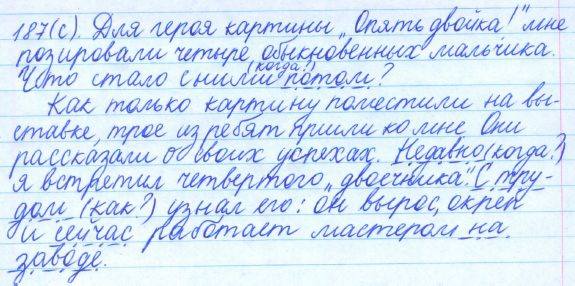 187(с). Для героя картины „Опять двойка!" мне
позировали четыре обыкновенных мальчика.
(когда?)
Что стало с ними потом?
Как только картину поместили на вы-
ставке, трое из ребят пришли ко мне. Они
рассказали о своих успехах. Недавно (когда?)
я встретил четвертого „двоечника". С тру-
дом (как?) узнал его: он вырос, окреп
и сейчас работает мастером на
заводе.